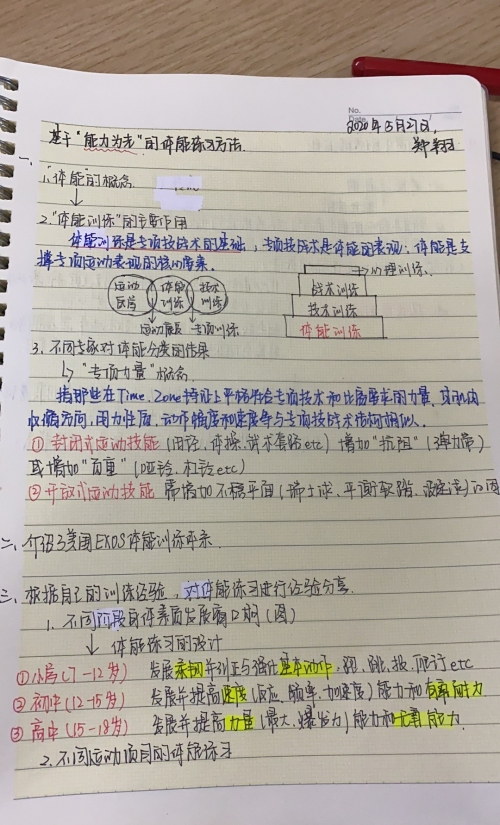 No.
Date
2020年5月27日.
郑翔
基于"能力为先"的体能练习方法.
一、
1."体能"的概念
2."体能训练"的主要作用
体能训练是专项技战术的基础，专项技战术是体能的表现；体能是支
撑专项运动表现的核心要素.
运动医疗
体能训练
技术训练
运动康复
专项训练
心理训练
战术训练
技术训练
体能训练
3. 不同专家对体能分类的结果
"专项力量"概念
指那些在Time, Zone特征上平衡符合专项技术和比赛要求的力量，其肌肉
收缩方向，用力性质，动作幅度和速度等与专项技战术结构相似.
①封闭式运动技能(田径、体操、武术套路etc) 增加"抗阻"(弹力带)
或增加"负重"(哑铃、杠铃etc)
②开放式运动技能 需增加不稳平面(瑞士球、平衡软踏、
二、介绍了美国EXOS体能训练体系.
三、根据自己的训练经验，对体能练习进行经验分享.
1. 不同阶段身体素质发展窗口期(图)
体能练习的设计
①小学(7-12岁) 发展柔韧并纠正与强化基本动作，跑、跳、投、爬行etc
②初中(12-15岁) 发展并提高速度(反应、频率、加速度)能力和有氧耐力
③高中(15-18岁) 发展并提高力量(最大、爆发力)能力和无氧能力.
2. 不同运动项目的体能练习